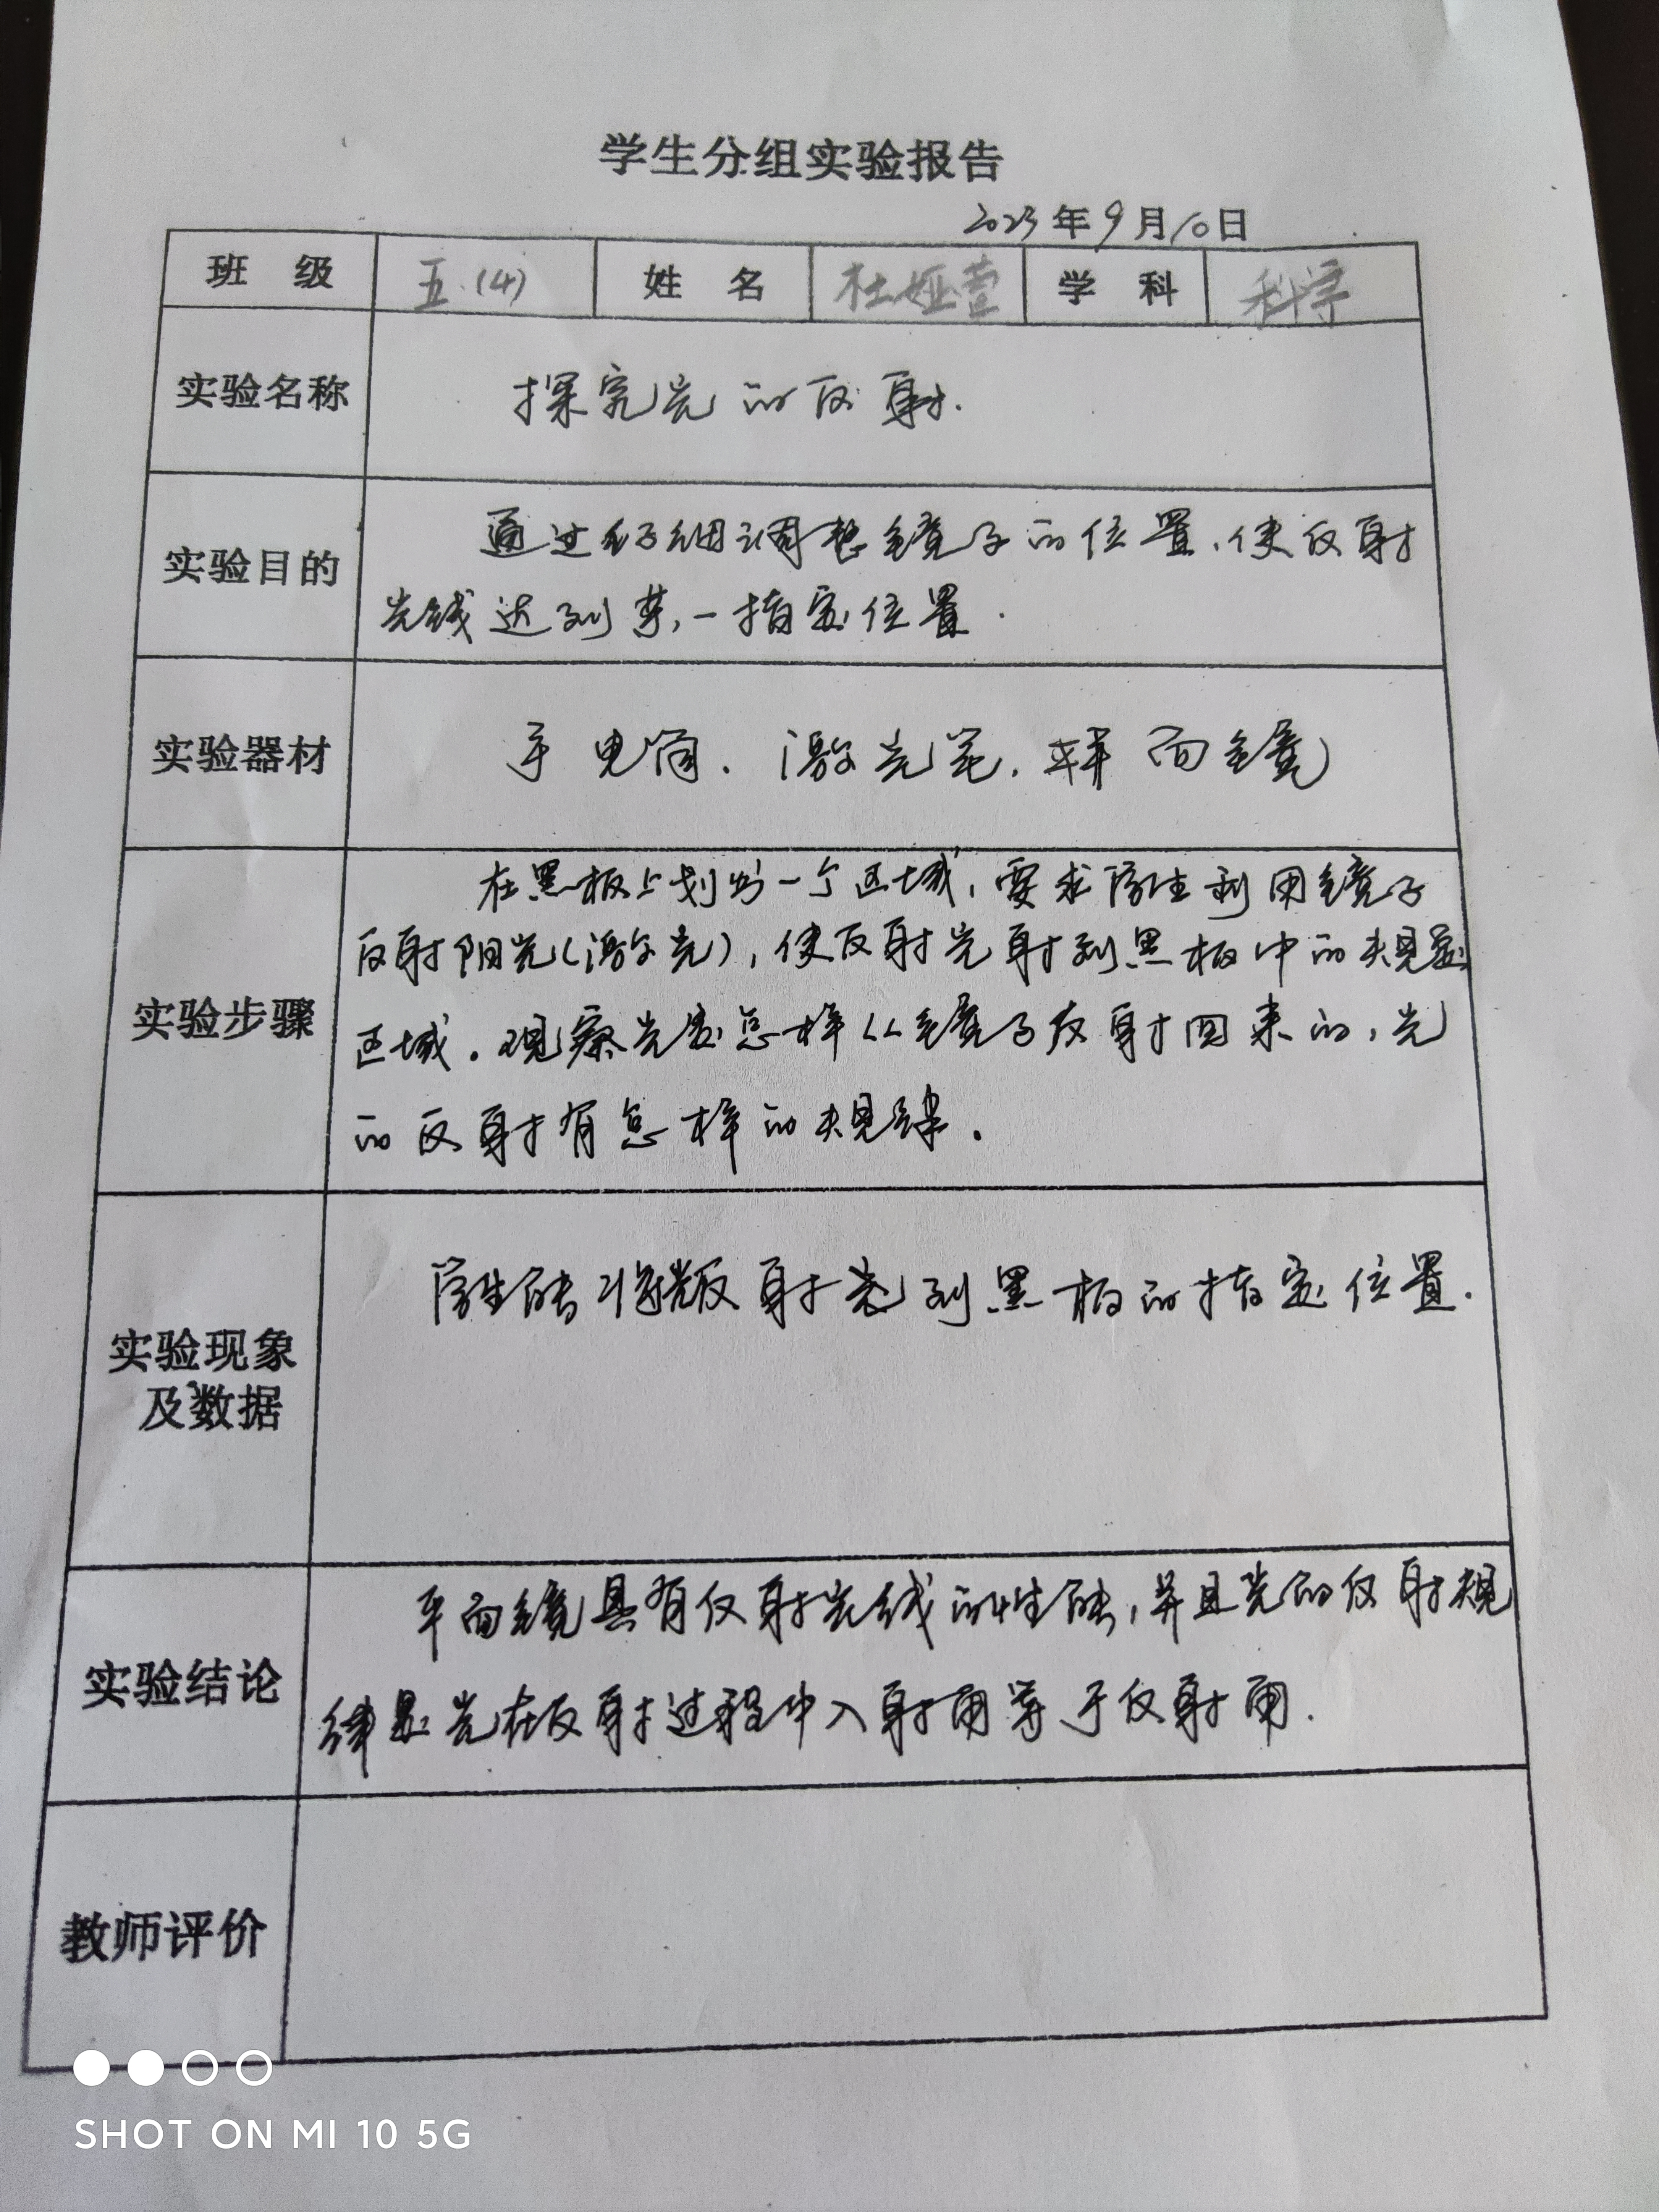 学生分组实验报告
2023年9月10日
班 级 五.(4) 姓 名 杜娅萱 学 科 科学
实验名称 探究光的反射.
实验目的 通过仔细调整镜子的位置,使反射
光线达到某一指定位置.
实验器材 手电筒.激光笔.平面镜
在黑板上划出一个区域,要求学生利用镜子
反射阳光(激光),使反射光射到黑板中的规定
实验步骤 区域.观察光是怎样从镜子反射回来的,光
的反射有怎样的规律.
学生能将反射光到黑板的指定位置.
实验现象
及数据
平面镜具有反射光线的性能,并且光的反射规
实验结论 律是光在反射过程中入射角等于反射角.
教师评价
SHOT ON MI 10 5G